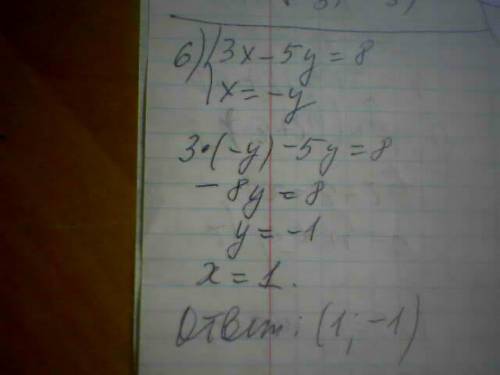 6) { 3x - 5y = 8
x = -y
3·(-y) - 5y = 8
- 8y = 8
y = -1
x = 1.
Ответ: (1; -1)